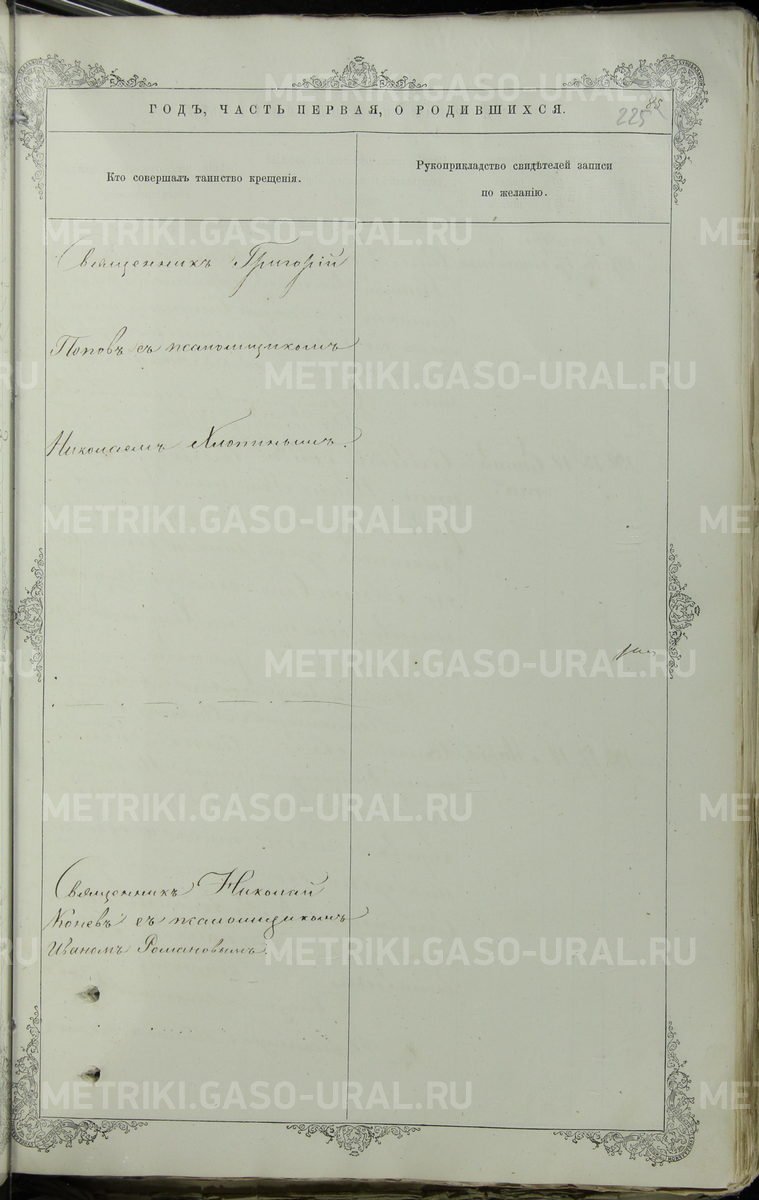 ГОДЪ, ЧАСТЬ ПЕРВАЯ, О РОДИВШИХСЯ.
85
225
Кто совершалъ таинство крещенія.
Рукоприкладство свидѣтелей записи
по желанію.
Священникъ Григорій
Поповъ съ псаломщикомъ
Николаемъ Хлопинымъ.
Священникъ Николай
Коневъ съ псаломщикомъ
Иваномъ Романовымъ.
METRIKI.GASO-URAL.RU